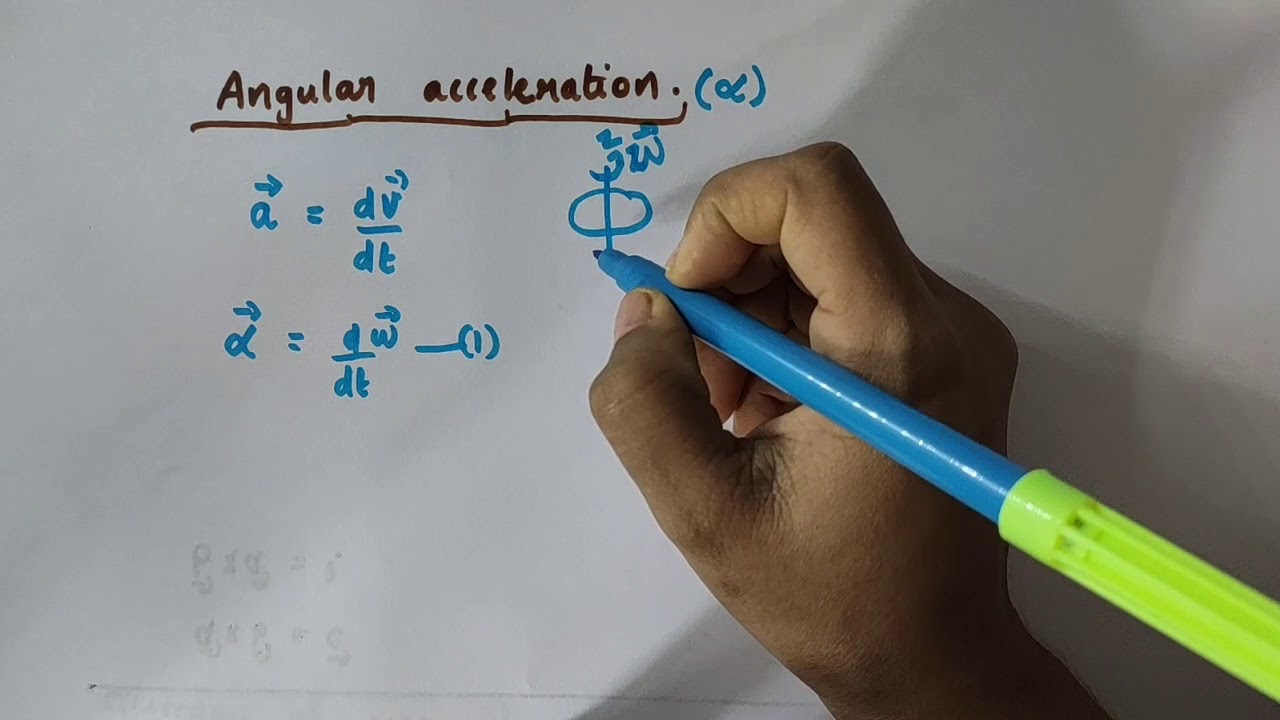 Angular acceleration. (α)
ω⃗
a⃗ = dv⃗/dt
α⃗ = dω⃗/dt —(1)